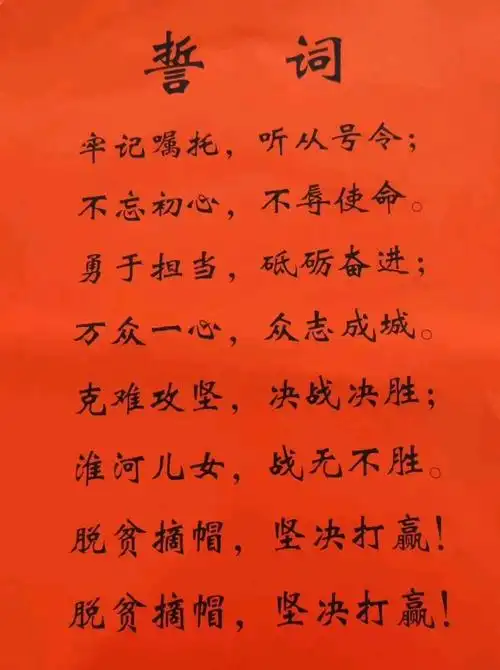 誓 词
牢记嘱托，听从号令；
不忘初心，不辱使命。
勇于担当，砥砺奋进；
万众一心，众志成城。
克难攻坚，决战决胜；
淮河儿女，战无不胜。
脱贫摘帽，坚决打赢！
脱贫摘帽，坚决打赢！